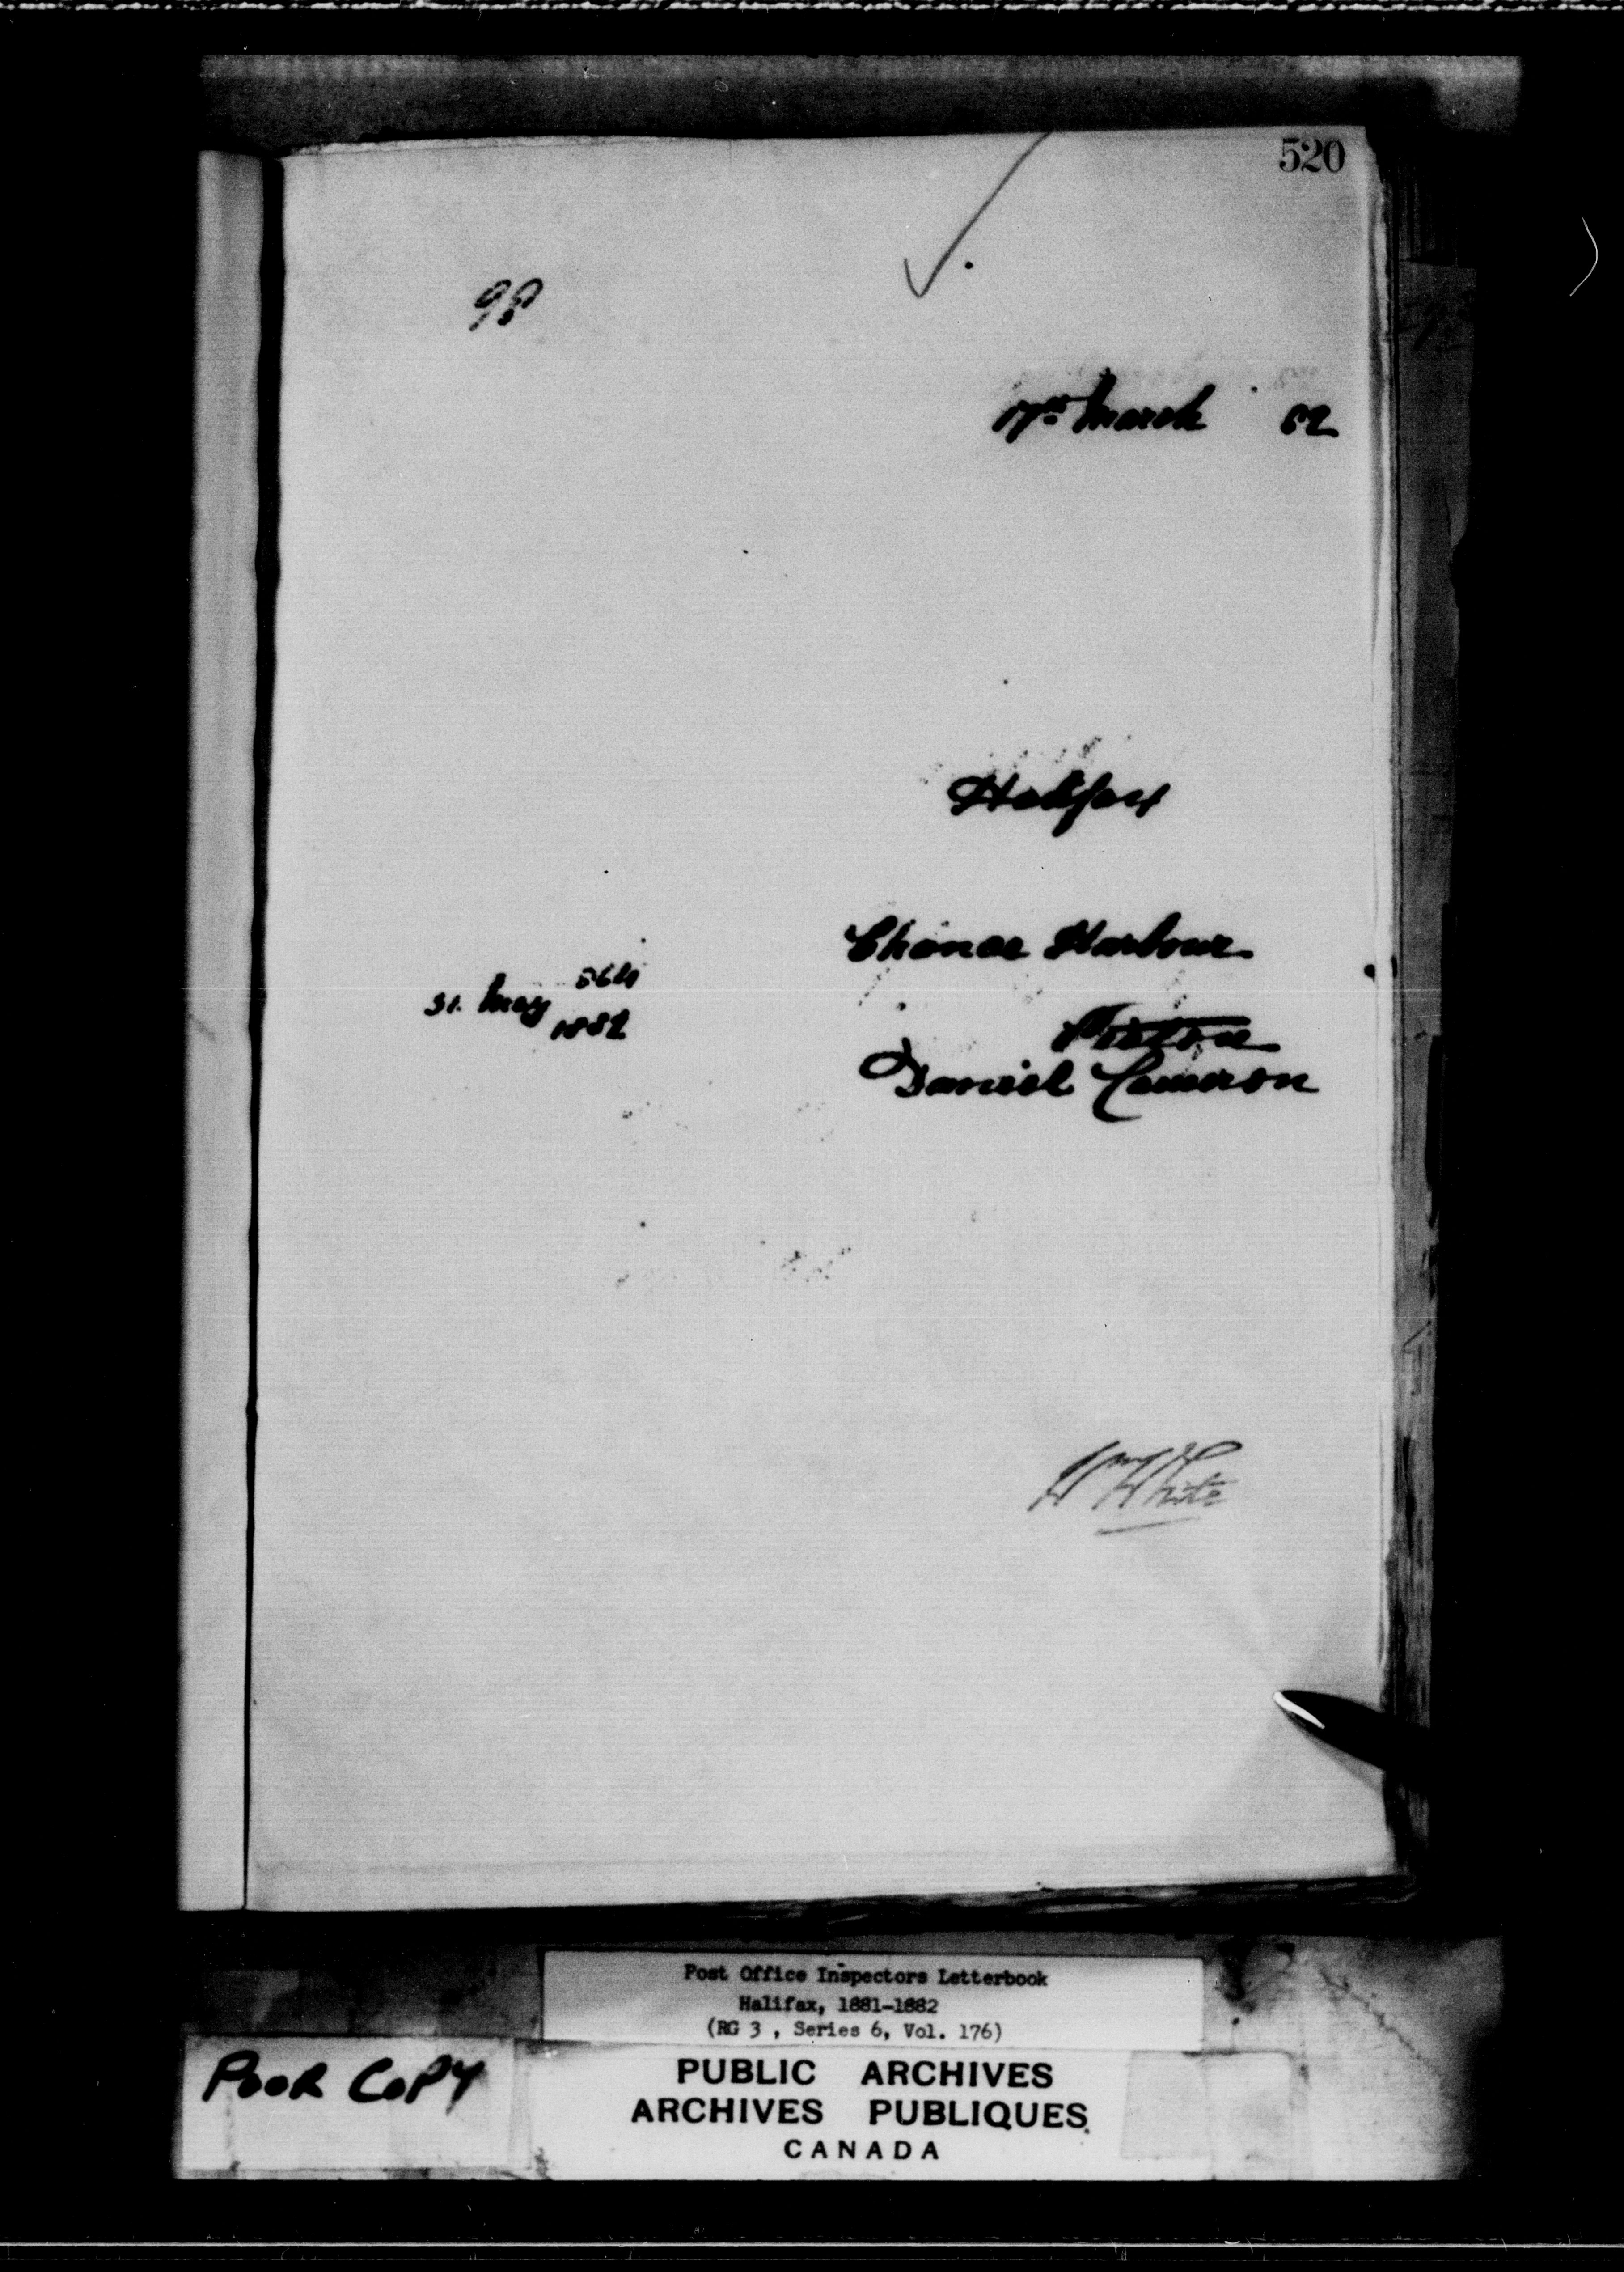 520
98
17th March 82
Halifax
Chance Harbour
564
31. May
1882
Pictou
Daniel Cameron
Wm White
Post Office Inspectors Letterbook
Halifax, 1881-1882
(RG 3 , Series 6, Vol. 176)
POOR COPY
PUBLIC ARCHIVES
ARCHIVES PUBLIQUES
CANADA